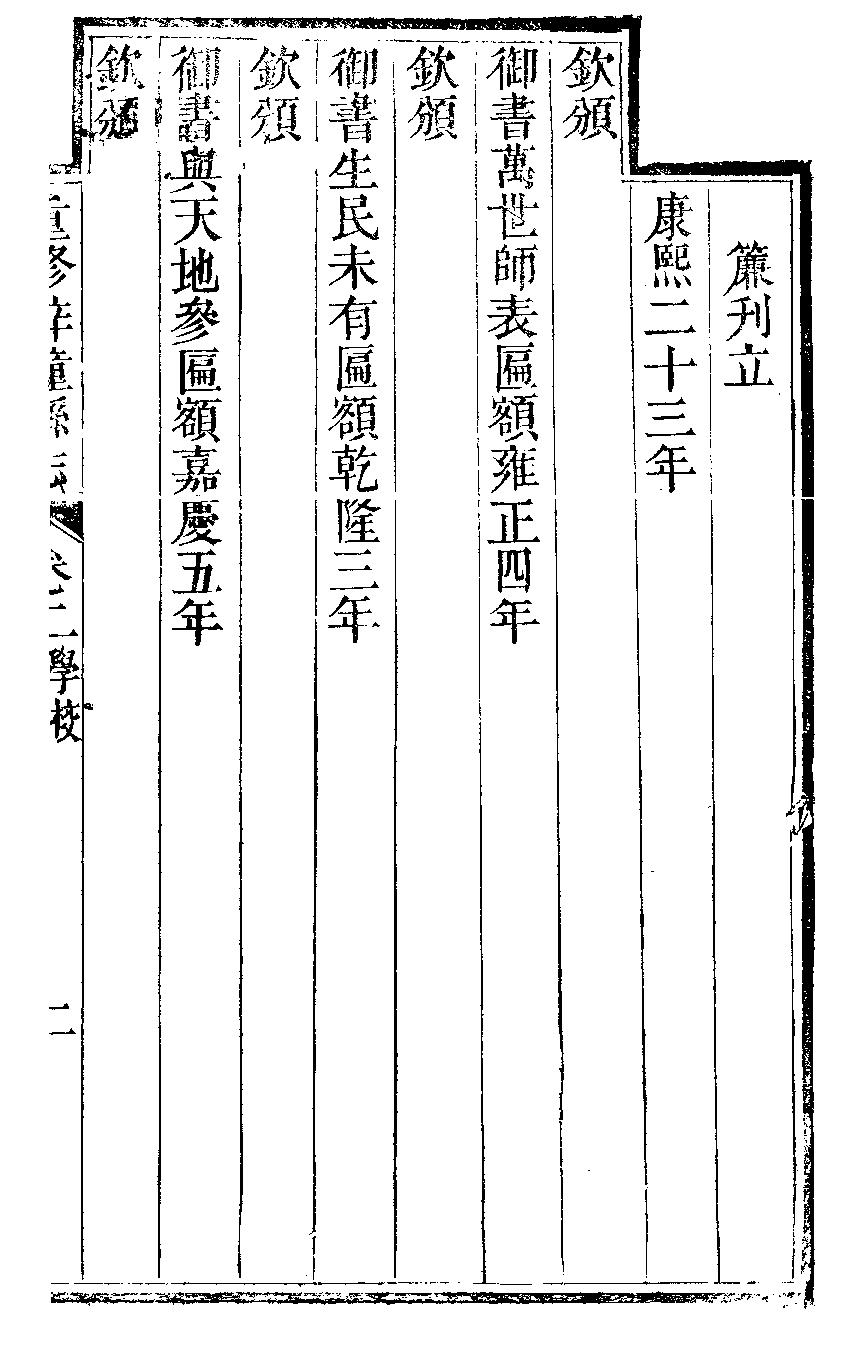 簾刋立
康熙二十三年
欽頒
御書萬世師表匾額雍正四年
欽頒
御書生民未有匾額乾隆三年
欽頒
御書與天地參匾額嘉慶五年
欽頒
重修梓潼縣志 卷二 學校 二